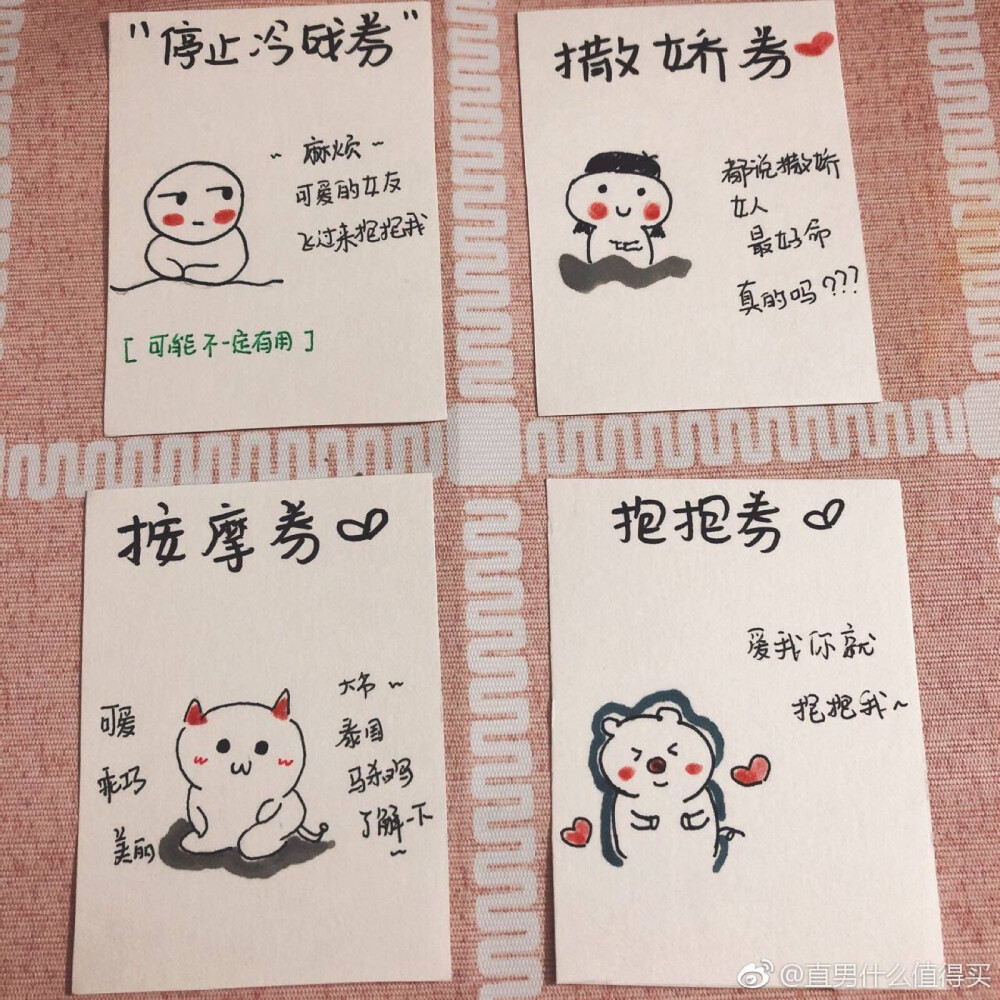 "停止冷战券"
~ 麻烦 ~
可爱的女友
飞过来抱抱我
[ 可能不一定有用 ]
撒娇券
都说撒娇
女人
最好命
真的吗???
按摩券
可爱
乖巧
美丽
大爷 ~
泰国
马杀鸡
了解一下
~
抱抱券
爱我你就
抱抱我~
@直男什么值得买